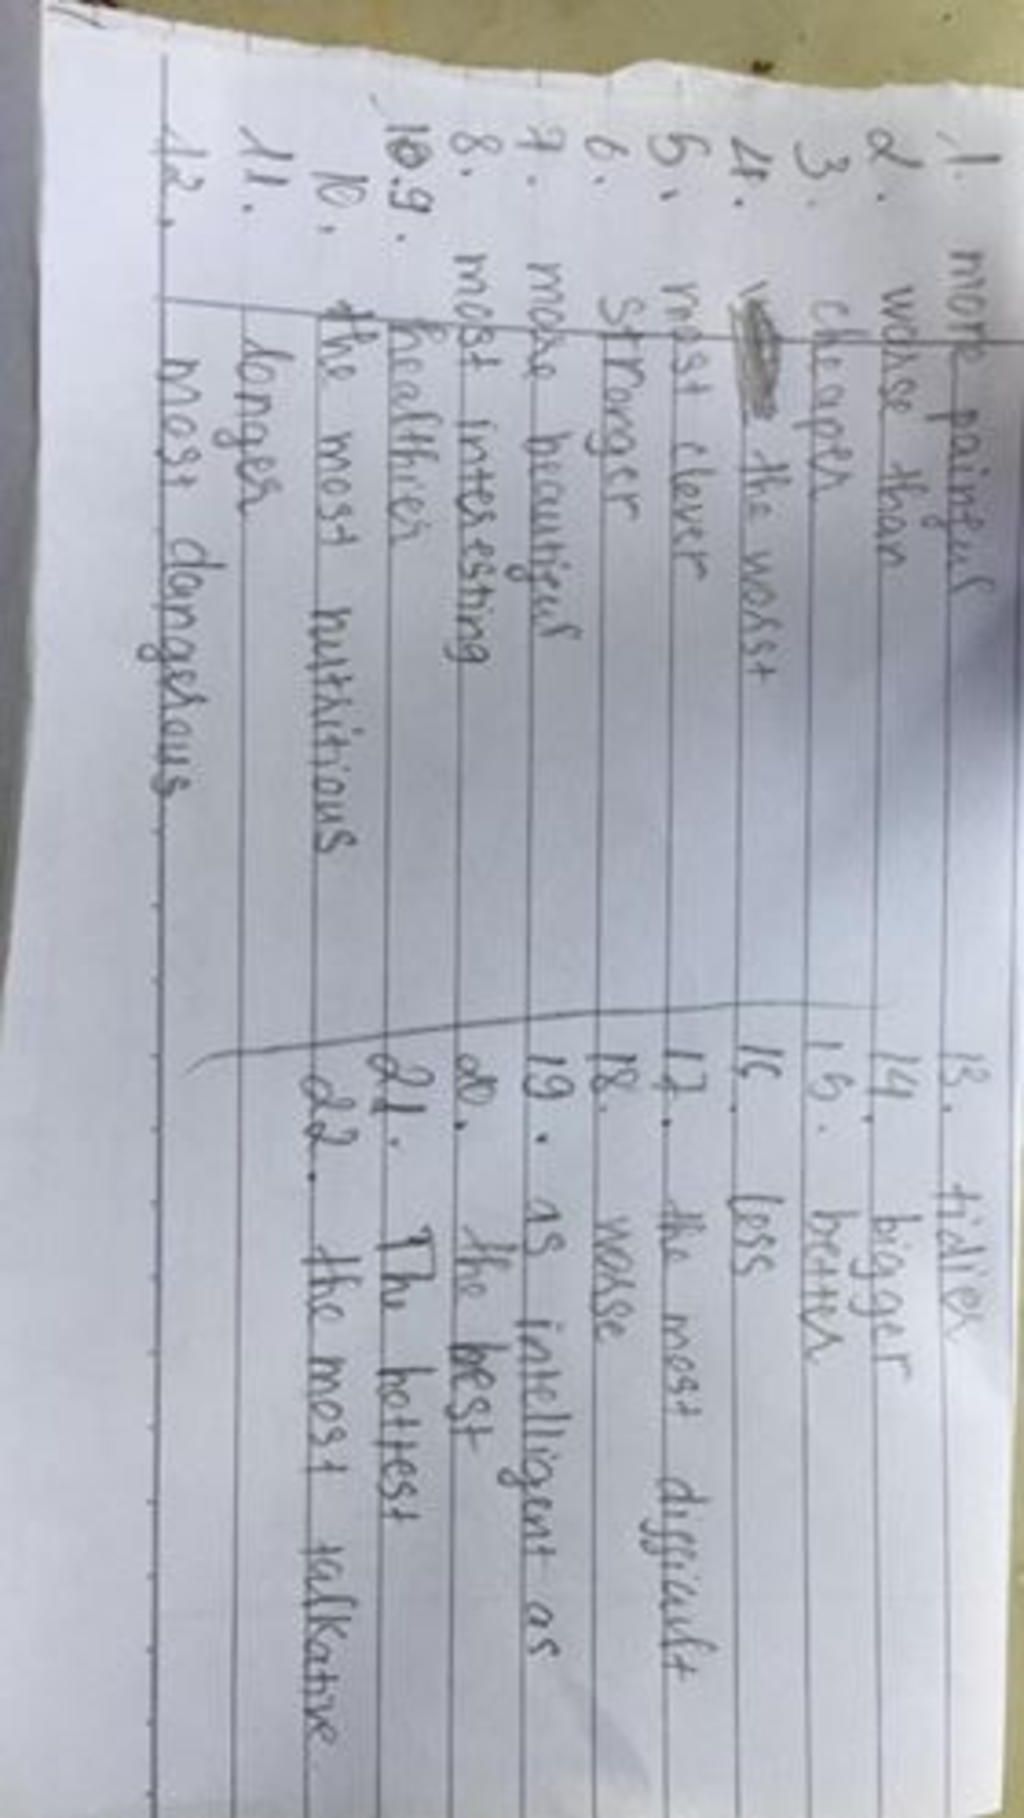 1. more painful
2. worse than
3. cheaper
4. the worst
5. most clever
6. stronger
7. more beautiful
8. most interesting
9. healthier
10. the most nutritious
11. longer
12. most dangerous
13. tidier
14. bigger
15. better
16. less
17. the most difficult
18. worse
19. as intelligent as
20. the best
21. The hottest
22. the most talkative